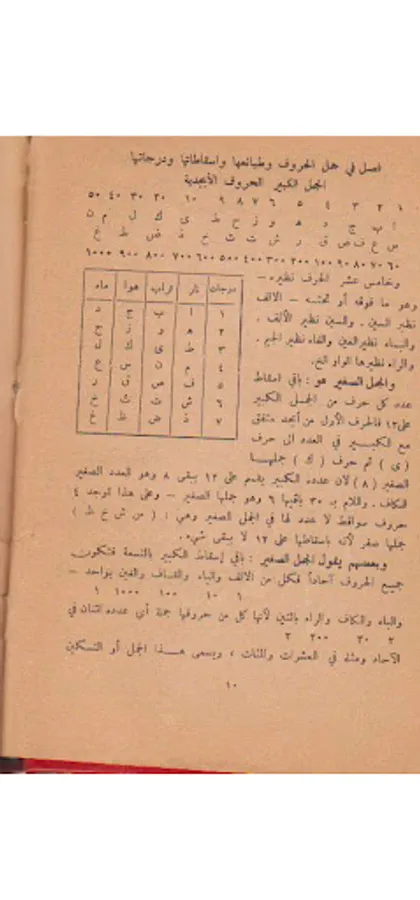 فصل في جمل الحروف وطبائعها واسقاطاتها ودرجاتها
الجمل الكبير للحروف الأبجدية
١ ٢ ٣ ٤ ٥ ٦ ٧ ٨ ٩ ١٠ ٢٠ ٣٠ ٤٠ ٥٠
ا ب ج د ه و ز ح ط ي ك ل م ن
س ع ف ص ق ر ش ت ث خ ذ ض ظ غ
٦٠ ٧٠ ٨٠ ٩٠ ١٠٠ ٢٠٠ ٣٠٠ ٤٠٠ ٥٠٠ ٦٠٠ ٧٠٠ ٨٠٠ ٩٠٠ ١٠٠٠
وخامس عشر الحرف نظيره —
وهو ما فوقه أو تحته — الالف
نظير السين . والسين نظير الألف .
والباء نظير العين والفاء نظير الجيم .
والراء نظيرها الواو الخ .
والجمل الصغير هو : باقي اسقاط
عدد كل حرف من الجمل الكبير
على ١٢ فالحرف الأول من أبجد متفق
مع الكبير في العدد الى حرف
( ي ) ثم حرف ( ك ) جملها
درجات نار تراب هوا ماء
١ ا ب ج د
٢ ه و ز ح
٣ ط ي ك ل
٤ م ن س ع
٥ ف ص ق ر
٦ ش ت ث خ
٧ ذ ض ظ غ
الصغير ( ٨ ) لأن عدده الكبير يقسم على ١٢ يبقى ٨ وهو العدد الصغير
للكاف . واللام به ٣٠ باقيها ٦ وهو جملها الصغير — وعلى هذا توجد ٤
حروف سواقط لا عدد لها في الجمل الصغير وهي : ( س ش خ ظ )
جملها صفر لأنه باسقاطها على ١٢ لا يبقى شيء .
وبعضهم يقول الجمل الصغير : باقي إسقاط الكبير بالتسعة فتكون
جميع الحروف آحاداً فكل من الالف والياء والقاف والغين بواحد —
١ ١٠ ١٠٠ ١٠٠٠ ١
والباء والكاف والراء باثنين لأنها كل من حروفها جملة أي عدده اثنان في
٢ ٢٠ ٢٠٠ ٢
الآحاد ومثله في العشرات والمئات ، ويسمى هذا الجمل أو التسكين
١٠